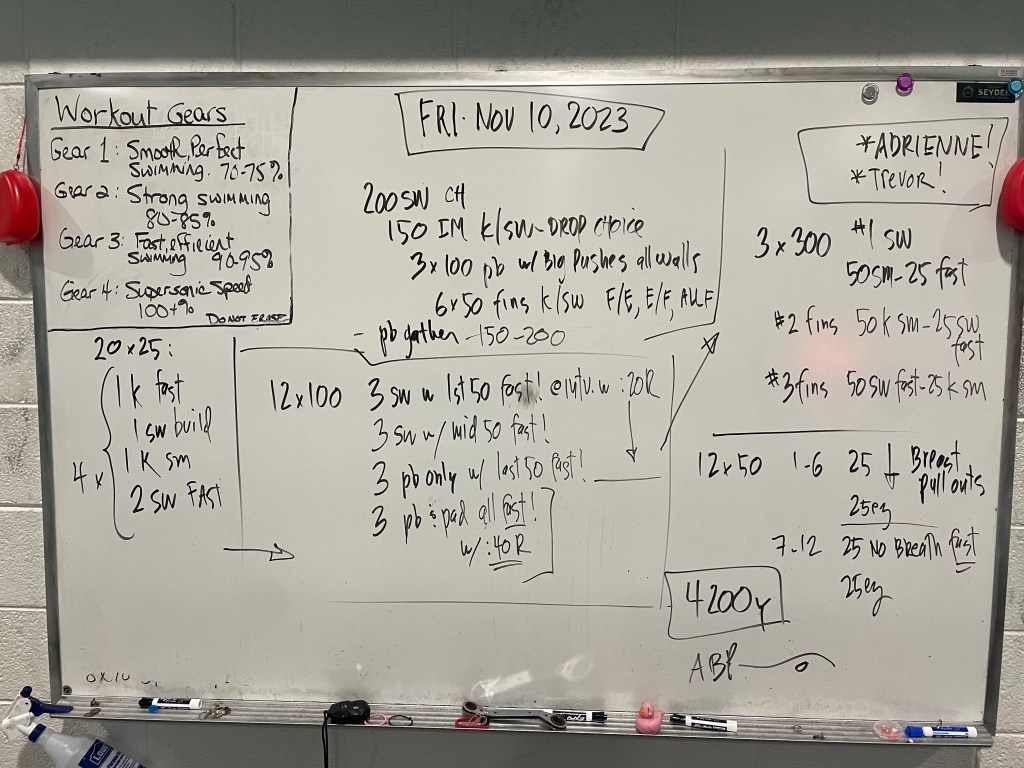 Workout Gears
Gear 1: Smooth, Perfect
Swimming. 70-75%
Gear 2: Strong swimming
80-85%
Gear 3: Fast, efficient
Swimming 90-95%
Gear 4: Supersonic Speed
100+%
DO NOT ERASE
FRI. NOV 10, 2023
200 SW CH
150 IM K/SW - DROP CHOICE
3 x 100 pb w/ Big Pushes all walls
6 x 50 fins K/SW F/E, E/F, ALL F
- pb gather - 150-200
20 x 25:
4 x
1 K fast
1 SW build
1 K sm
2 SW FAST
12 x 100 3 SW w 1st 50 fast! :20R
3 SW w/ mid 50 fast!
3 pb only w/ last 50 fast!
3 pb & pad all fast!
w/ :40R
*ADRIENNE!
*Trevor!
3 x 300 #1 SW
50 sm - 25 fast
#2 fins 50 K sm - 25 SW
fast
#3 fins 50 SW fast - 25 K sm
12 x 50 1-6 25 ↓ Breast
pull outs
25 ez
7-12 25 No Breath fast
25 ez
4200y
ABP
SEYDEL